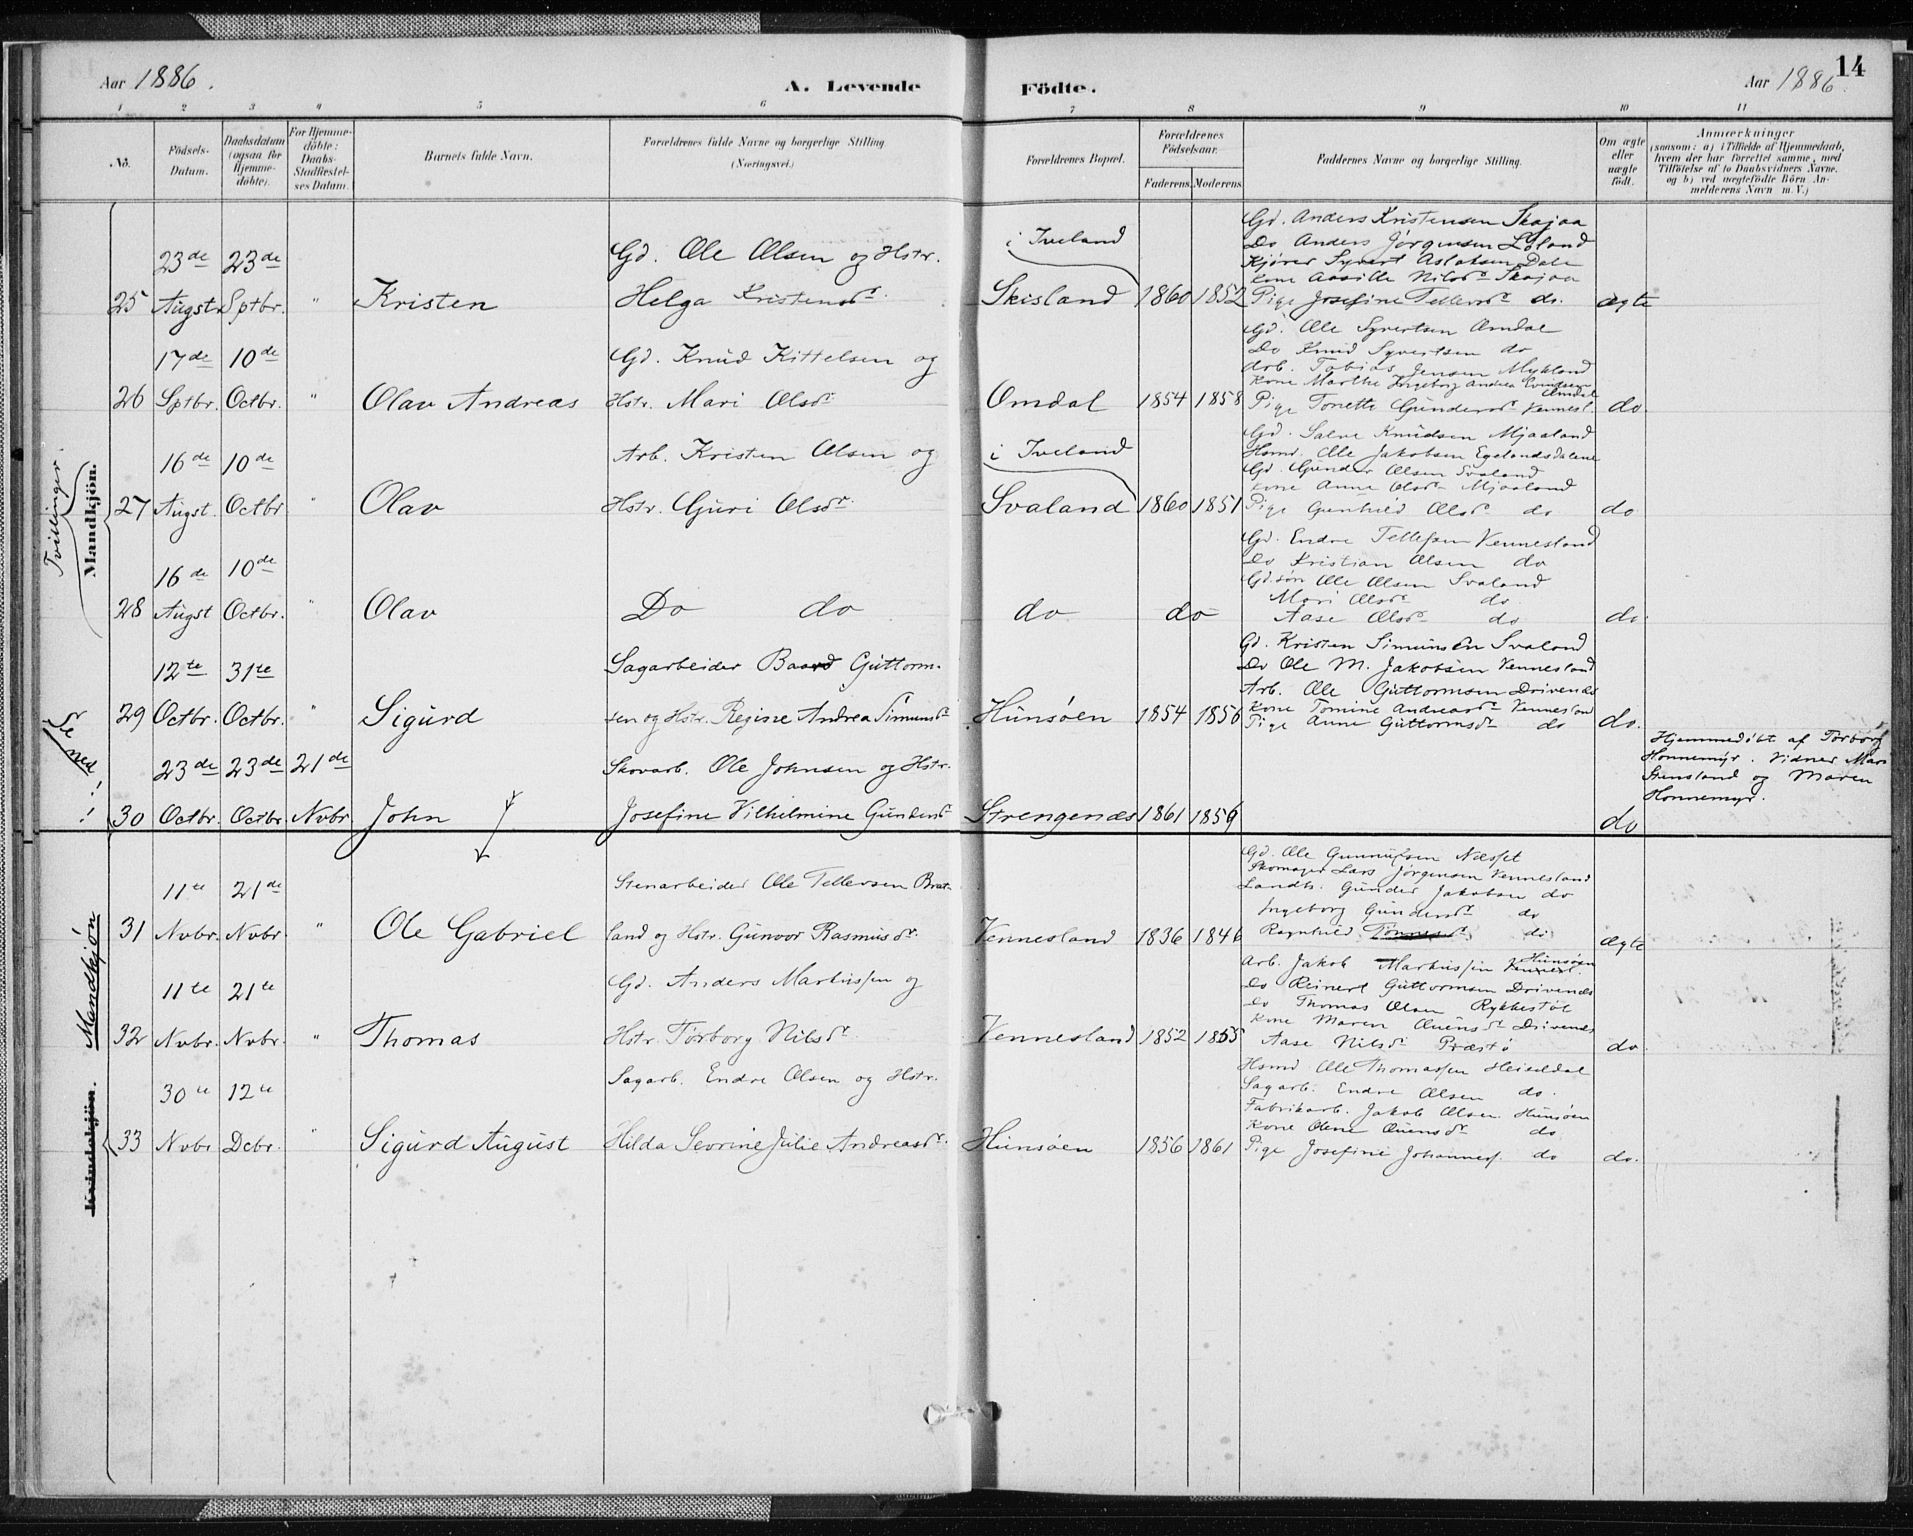 14
Aar 1886. A. Levende Födte. Aar 1886.
1 2 3 4 5 6 7 8 9 10 11
No.
Födsels-
Datum.
Daabsdatum
(ogsaa for
Hjemme-
döbte).
For Hjemme-
döbte:
Daabs-
Stadfæstel-
ses Datum.
Barnets fulde Navn.
Forældrenes fulde Navne og borgerlige Stilling
(Næringsvei.)
Forældrenes Bopæl.
Forældrenes
Födselsaar.
Faderens. Moderens.
Faddernes Navne og borgerlige Stilling.
Om ægte
eller
uægte
födt.
Anmærkninger
(saasom: a) i Tilfælde af Hjemmedaab,
hvem der har forrettet samme, med
Tilföielse af to Daabsvidners Navne.
og b) ved uægtefödte Börn An-
melderens Navn m. V.)
Tvillinger.
Mandkjön.
Se
ned
!
Mandkjön
Kvindekjön.
23de 23de Gd. Ole Olsen og Hstr. i Iveland
25 Augst. Sptbr. " Kristen Helga Kristensdr. Skisland 1860 1852 ægte
Gd. Anders Kristensen Skajaa
Do Anders Jørgensen Løland
Kjører Syvert Aslaksen Dale
Kone Aasille Nilsdr Skajaa
Pige Josefine Tellevsdr do.
17de 10de Gd. Knud Kittelsen og
26 Sptbr. Octbr. " Olav Andreas Hstr. Mari Olsdr Omdal 1854 1858 do.
Gd. Ole Syvertsen Omdal
Do Knud Syvertsen do
Arb. Tobias Jensen Mykland
Kone Marthe Ingeborg Andrea Evindsen
Omdal
Pige Tonette Gundersdr Vennesl.
16de 10de Arb. Kristen Olsen og i Iveland
27 Augst. Octbr " Olav Hstr. Guri Olsdr Svaland 1860 1851 do
Gd. Salve Knudsen Mjaaland
Hsmd. Ole Jakobsen Egelandsdalene
Gd. Gunder Olsen Svaland
Kone Anne Olsdr Mjaaland
Pige Gunhild Olsdr do
16de 10de
28 Augst Octbr. " Olav Do do do do do.
Gd. Endre Tellefsen Vennesland
Do Kristian Olsen do
Gd.søn Ole Olsen Svaland
Mari Olsdr do.
Aase Olsdr do
12te 31te Sagarbeider Baard Guttorm-
29 Octbr. Octbr. " Sigurd sen og Hstr. Regine Andrea Simonsdr Hunsøen 1854 1856 do.
Gd. Kristen Simunsen Svaland
Do Ole M. Jakobsen Vennesland
Arb. Ole Guttormsen Drivenes
Kone Tomine Andreasdr Vennesland
Pige Anne Guttormsdr do
23de 23de 21de Skovarb. Ole Johnsen og Hstr.
30 Octbr. Octbr. Nvbr. John Josefine Vilhelmine Gundersdr Strengenæs 1861 1859 do
Hjemmedøbt af Torborg
Honnemyr. Vidner Mari
Stensland og Maren
Honnemyr.
11te 21de Stenarbeider Ole Tellevsen Brat-
31 Nvbr. Nvbr " Ole Gabriel land og Hstr. Gunvor Rasmusdr. Vennesland 1836 1846 ægte
Gd. Ole Gunnufsen Næsset
Skomager Lars Jørgensen Vennesland
Landh. Gunder Jakobsen do
Ingeborg Gundersdr do
Ragnhild Tønnesdr do
11te 21te Gd. Anders Markussen og
32 Nvbr. Nvbr. " Thomas Hstr. Torborg Nilsdr Vennesland 1852 1855 do
Arb. Jakob Markussen Vennesl. Hunsøen
Do Reinert Guttormsen Drivenæs
Do Thomas Olsen Rykkestøl
Kone Maren Ouensdr Drivenes
Aase Nilsdr Præstø
30te 12te Sagarb. Endre Olsen og Hstr.
33 Nvbr Dcbr. " Sigurd August Hilda Sevrine Julie Andreasdr. Hunsøen 1856 1861 do.
Hsmd Ole Thomassen Heiseldal
Sagarb. Endre Olsen do.
Fabrikarb. Jakob Olsen Hunsøen
Kone Olene Ouensdr do
Pige Josefine Johannesf. do